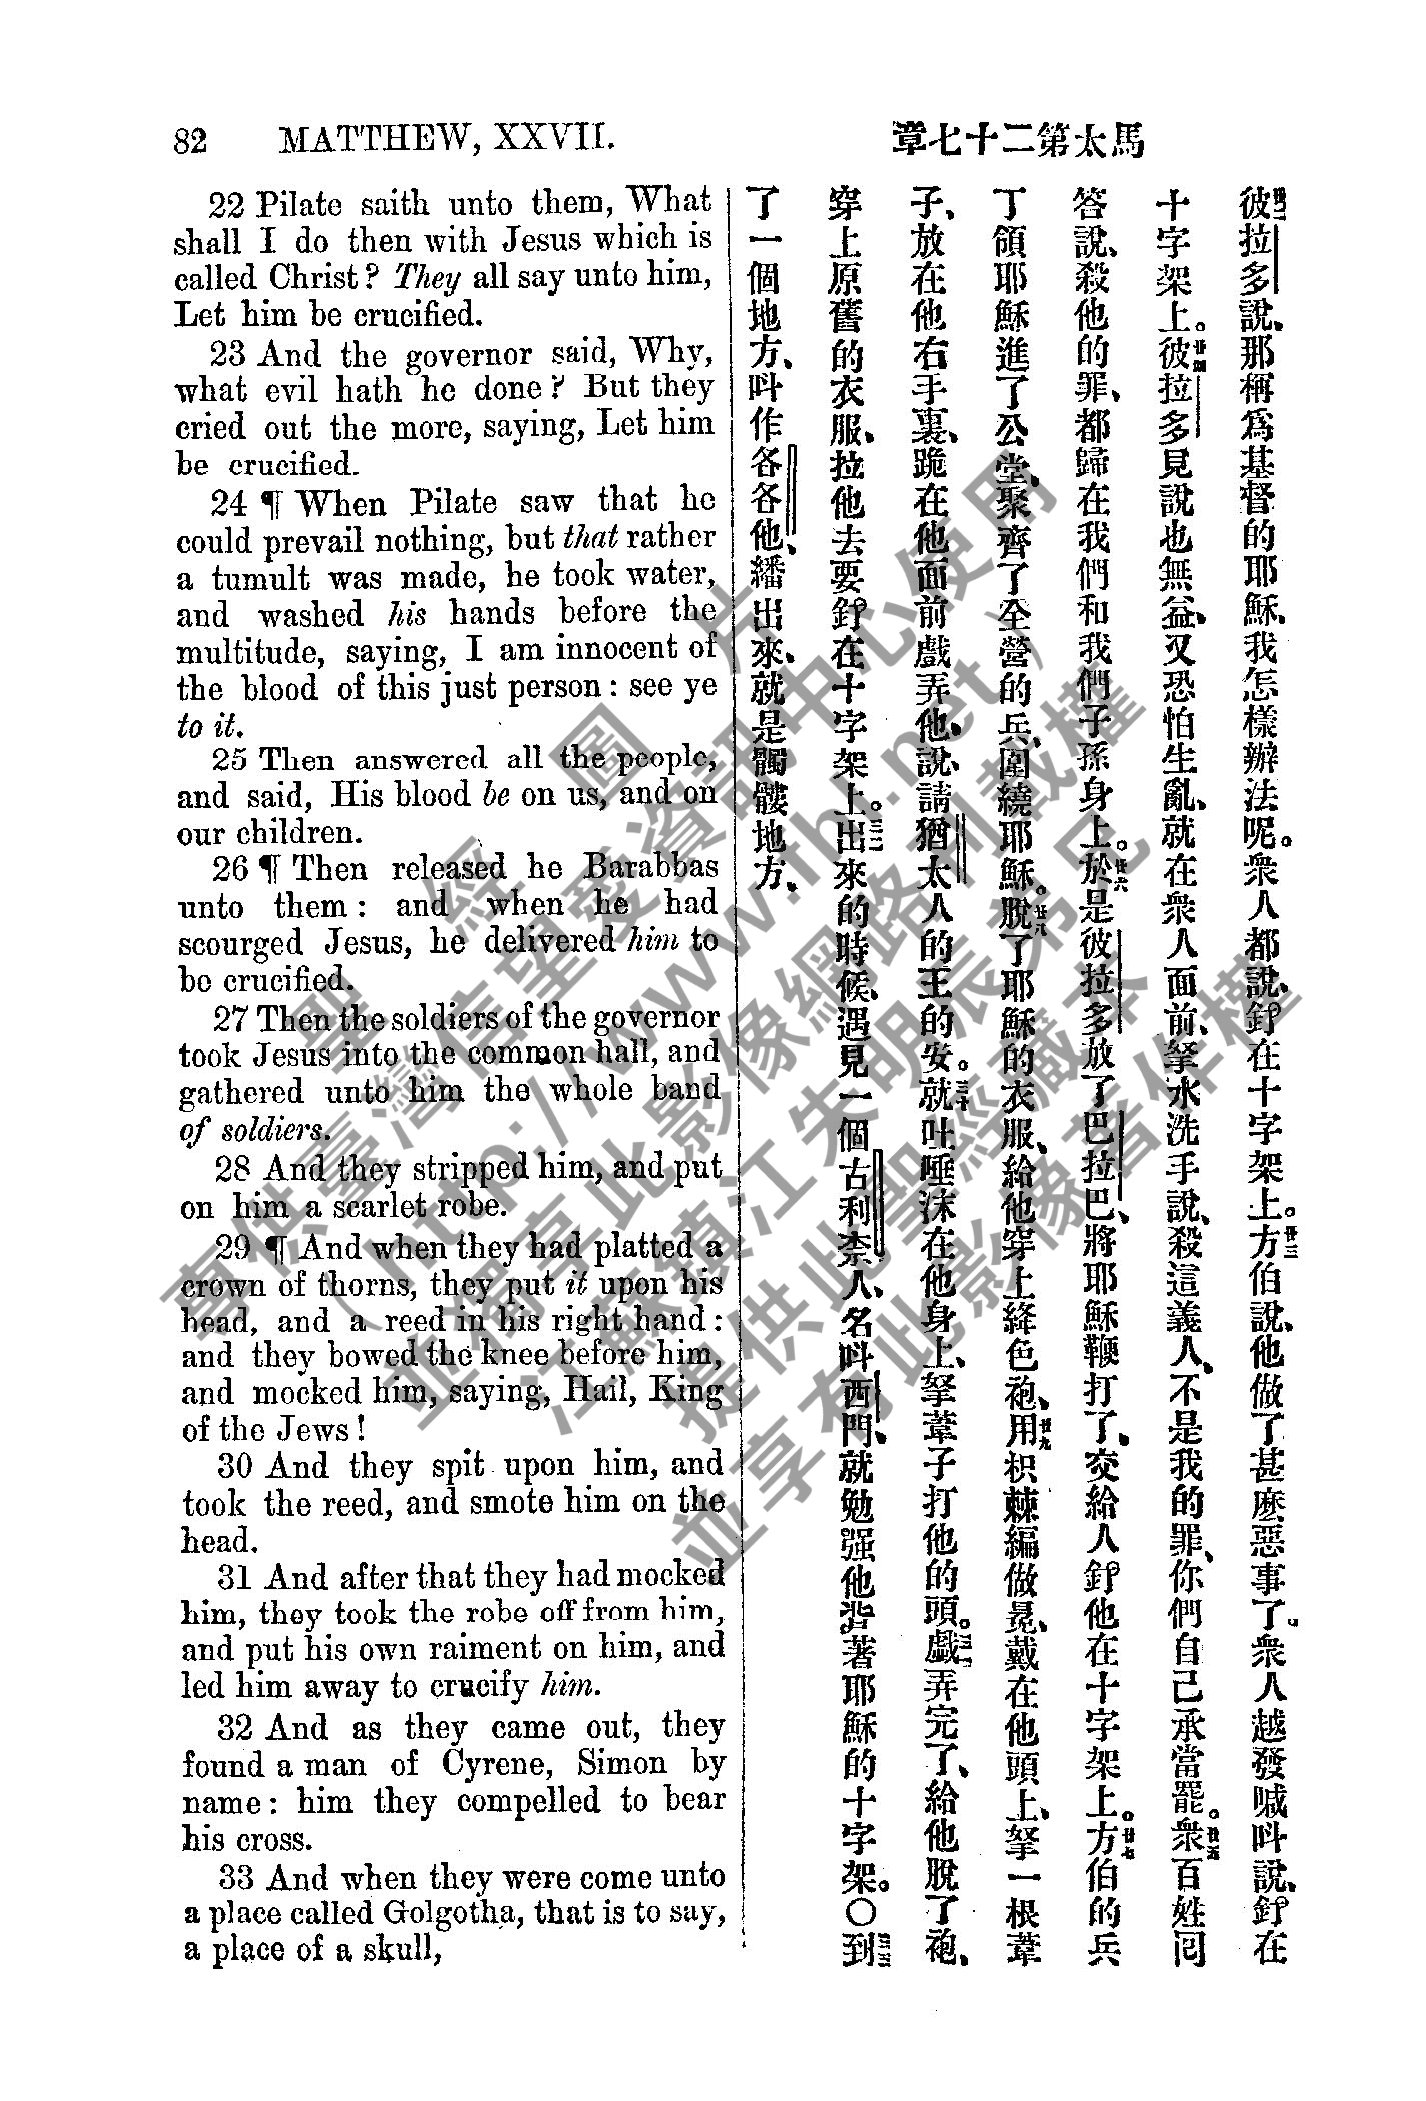 82 MATTHEW, XXVII.
馬太第二十七章
22 Pilate saith unto them, What
shall I do then with Jesus which is
called Christ? They all say unto him,
Let him be crucified.
23 And the governor said, Why,
what evil hath he done? But they
cried out the more, saying, Let him
be crucified.
24 ¶ When Pilate saw that he
could prevail nothing, but that rather
a tumult was made, he took water,
and washed his hands before the
multitude, saying, I am innocent of
the blood of this just person: see ye
to it.
25 Then answered all the people,
and said, His blood be on us, and on
our children.
26 ¶ Then released he Barabbas
unto them: and when he had
scourged Jesus, he delivered him to
be crucified.
27 Then the soldiers of the governor
took Jesus into the common hall, and
gathered unto him the whole band
of soldiers.
28 And they stripped him, and put
on him a scarlet robe.
29 ¶ And when they had platted a
crown of thorns, they put it upon his
head, and a reed in his right hand:
and they bowed the knee before him,
and mocked him, saying, Hail, King
of the Jews!
30 And they spit upon him, and
took the reed, and smote him on the
head.
31 And after that they had mocked
him, they took the robe off from him,
and put his own raiment on him, and
led him away to crucify him.
32 And as they came out, they
found a man of Cyrene, Simon by
name: him they compelled to bear
his cross.
33 And when they were come unto
a place called Golgotha, that is to say,
a place of a skull,
彼拉多說、那稱爲基督的耶穌、我怎樣辦法呢。衆人都說、釘在十字架上。廿三方伯說、他做了甚麽惡事了。衆人越發喊呌說、釘在
十字架上。廿四彼拉多見說也無益、又恐怕生亂、就在衆人面前、拏水洗手說、殺這義人、不是我的罪、你們自己承當罷。廿五衆百姓囘
答說、殺他的罪、都歸在我們和我們子孫身上。廿六於是彼拉多放了巴拉巴、將耶穌鞭打了、交給人釘他在十字架上。廿七方伯的兵
丁領耶穌進了公堂、聚齊了全營的兵、圍繞耶穌。廿八脫了耶穌的衣服、給他穿上絳色袍、廿九用枳棘編做冕、戴在他頭上、拏一根葦
子、放在他右手裏、跪在他面前戲弄他、說、請猶太人的王的安。三十就吐唾沫在他身上、拏葦子打他的頭。三一戲弄完了、給他脫了袍、
穿上原舊的衣服、拉他去要釘在十字架上。三二出來的時候、遇見一個古利柰人、名呌西門、就勉强他背著耶穌的十字架。〇三三到
了一個地方、呌作各各他、繙出來、就是髑髏地方、
聖經圖片
專供臺灣信望愛資訊中心使用
（http://www.fhl.net）
並得享此影像網路刊載權
江蘇鎮江朱明辰弟兄
提供此聖經藏本
並享有此影像著作權